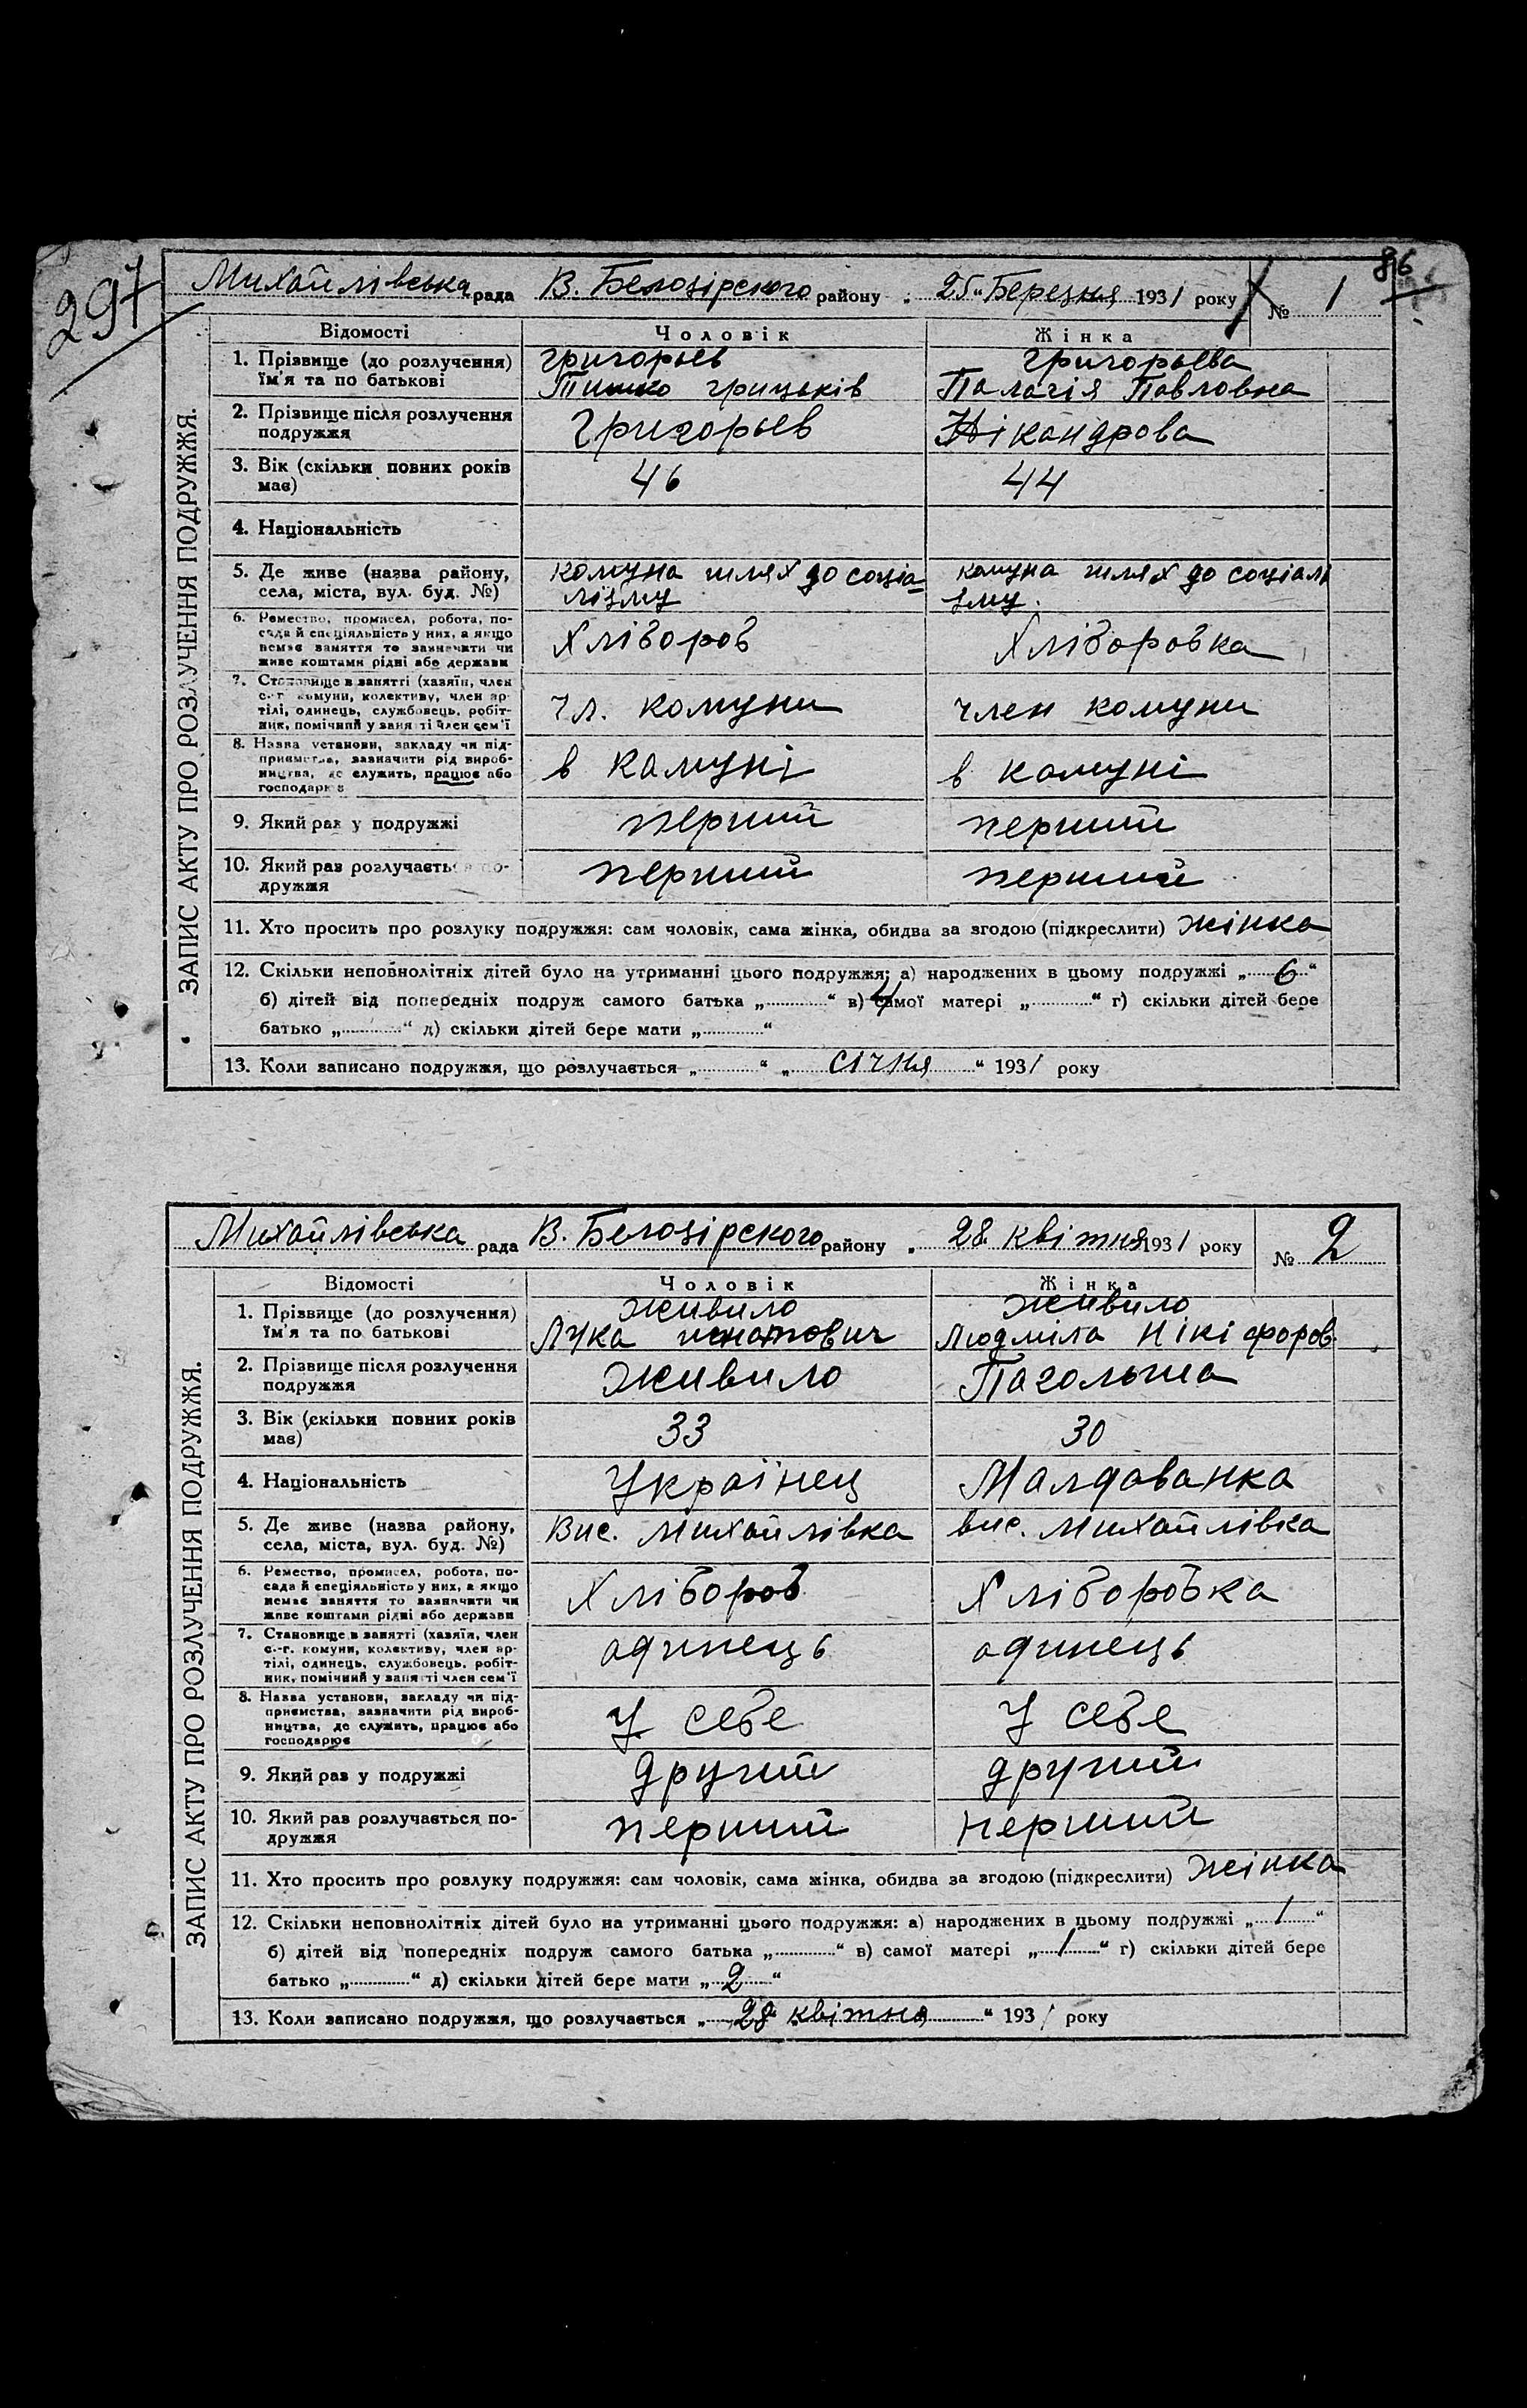 297
86
Михайлівська рада В. Белозірского району „ 25 " Березня 1931 року № 1
ЗАПИС АКТУ ПРО РОЗЛУЧЕННЯ ПОДРУЖЖЯ.
Відомості Чоловік Жінка
1. Прізвище (до розлучення) Григорьев Григорьева
їм'я та по батькові Тишко Грицьків Палагія Павловна
2. Прізвище після розлучення Григорьев Нікандрова
подружжя
3. Вік (скільки повних років 46 44
має)
4. Національність
5. Де живе (назва району, комуна шлях до соціа- комуна шлях до соціалі
села, міста, вул. буд. №) лізму зму.
6. Ремество, промисел, робота, по-
сада й спеціяльність у них, а якщо Хлібороб Хліборобка
немає заняття то зазначити чи
живе коштами рідні або держави
7. Становище в занятті (хазяїн, член
с.-г. комуни, колективу, член ар- чл. комуни член комуни
тілі, одинець, службовець, робіт-
ник, помічний у занятті член сем'ї
8. Назва установи, закладу чи під-
приємства, зазначити рід вироб- в камуні в комуні
ництва, де служить, працює або
господарює
9. Який раз у подружжі перший перший
10. Який раз розлучається по- перший перший
дружжя
11. Хто просить про розлуку подружжя: сам чоловік, сама жінка, обидва за згодою (підкреслити) жінка
12. Скільки неповнолітніх дітей було на утриманні цього подружжя: а) народжених в цьому подружжі „ 6 "
б) дітей від попередніх подруж самого батька „ " в) самої матері „ " г) скільки дітей бере
батько „ " д) скільки дітей бере мати „ "
13. Коли записано подружжя, що розлучається „ " „ січня " 1931 року
Михайлівська рада В. Белозірского району „ 28 квітня 1931 року № 2
ЗАПИС АКТУ ПРО РОЗЛУЧЕННЯ ПОДРУЖЖЯ.
Відомості Чоловік Жінка
1. Прізвище (до розлучення) Живило Живило
їм'я та по батькові Лука игнатович Людміла Нікіфоров.
2. Прізвище після розлучення Живило Пагольша
подружжя
3. Вік (скільки повних років 33 30
має)
4. Національність Українец Малдованка
5. Де живе (назва району, Вис. Михайлівка вис. Михайлівка
села, міста, вул. буд. №)
6. Ремество, промисел, робота, по-
сада й спеціяльність у них, а якщо Хлібороб Хліборобка
немає заняття то зазначити чи
живе коштами рідні або держави
7. Становище в занятті (хазяїн, член
с.-г. комуни, колективу, член ар- одинець одинець
тілі, одинець, службовець, робіт-
ник, помічний у занятті член сем'ї
8. Назва установи, закладу чи під-
приємства, зазначити рід вироб- у себе у себе
ництва, де служить, працює або
господарює
9. Який раз у подружжі другий другий
10. Який раз розлучається по- перший перший
дружжя
11. Хто просить про розлуку подружжя: сам чоловік, сама жінка, обидва за згодою (підкреслити) жінка
12. Скільки неповнолітніх дітей було на утриманні цього подружжя: а) народжених в цьому подружжі „ 1 "
б) дітей від попередніх подруж самого батька „ " в) самої матері „ 1 " г) скільки дітей бере
батько „ " д) скільки дітей бере мати „ 2 "
13. Коли записано подружжя, що розлучається „ 28 квітня " 1931 року